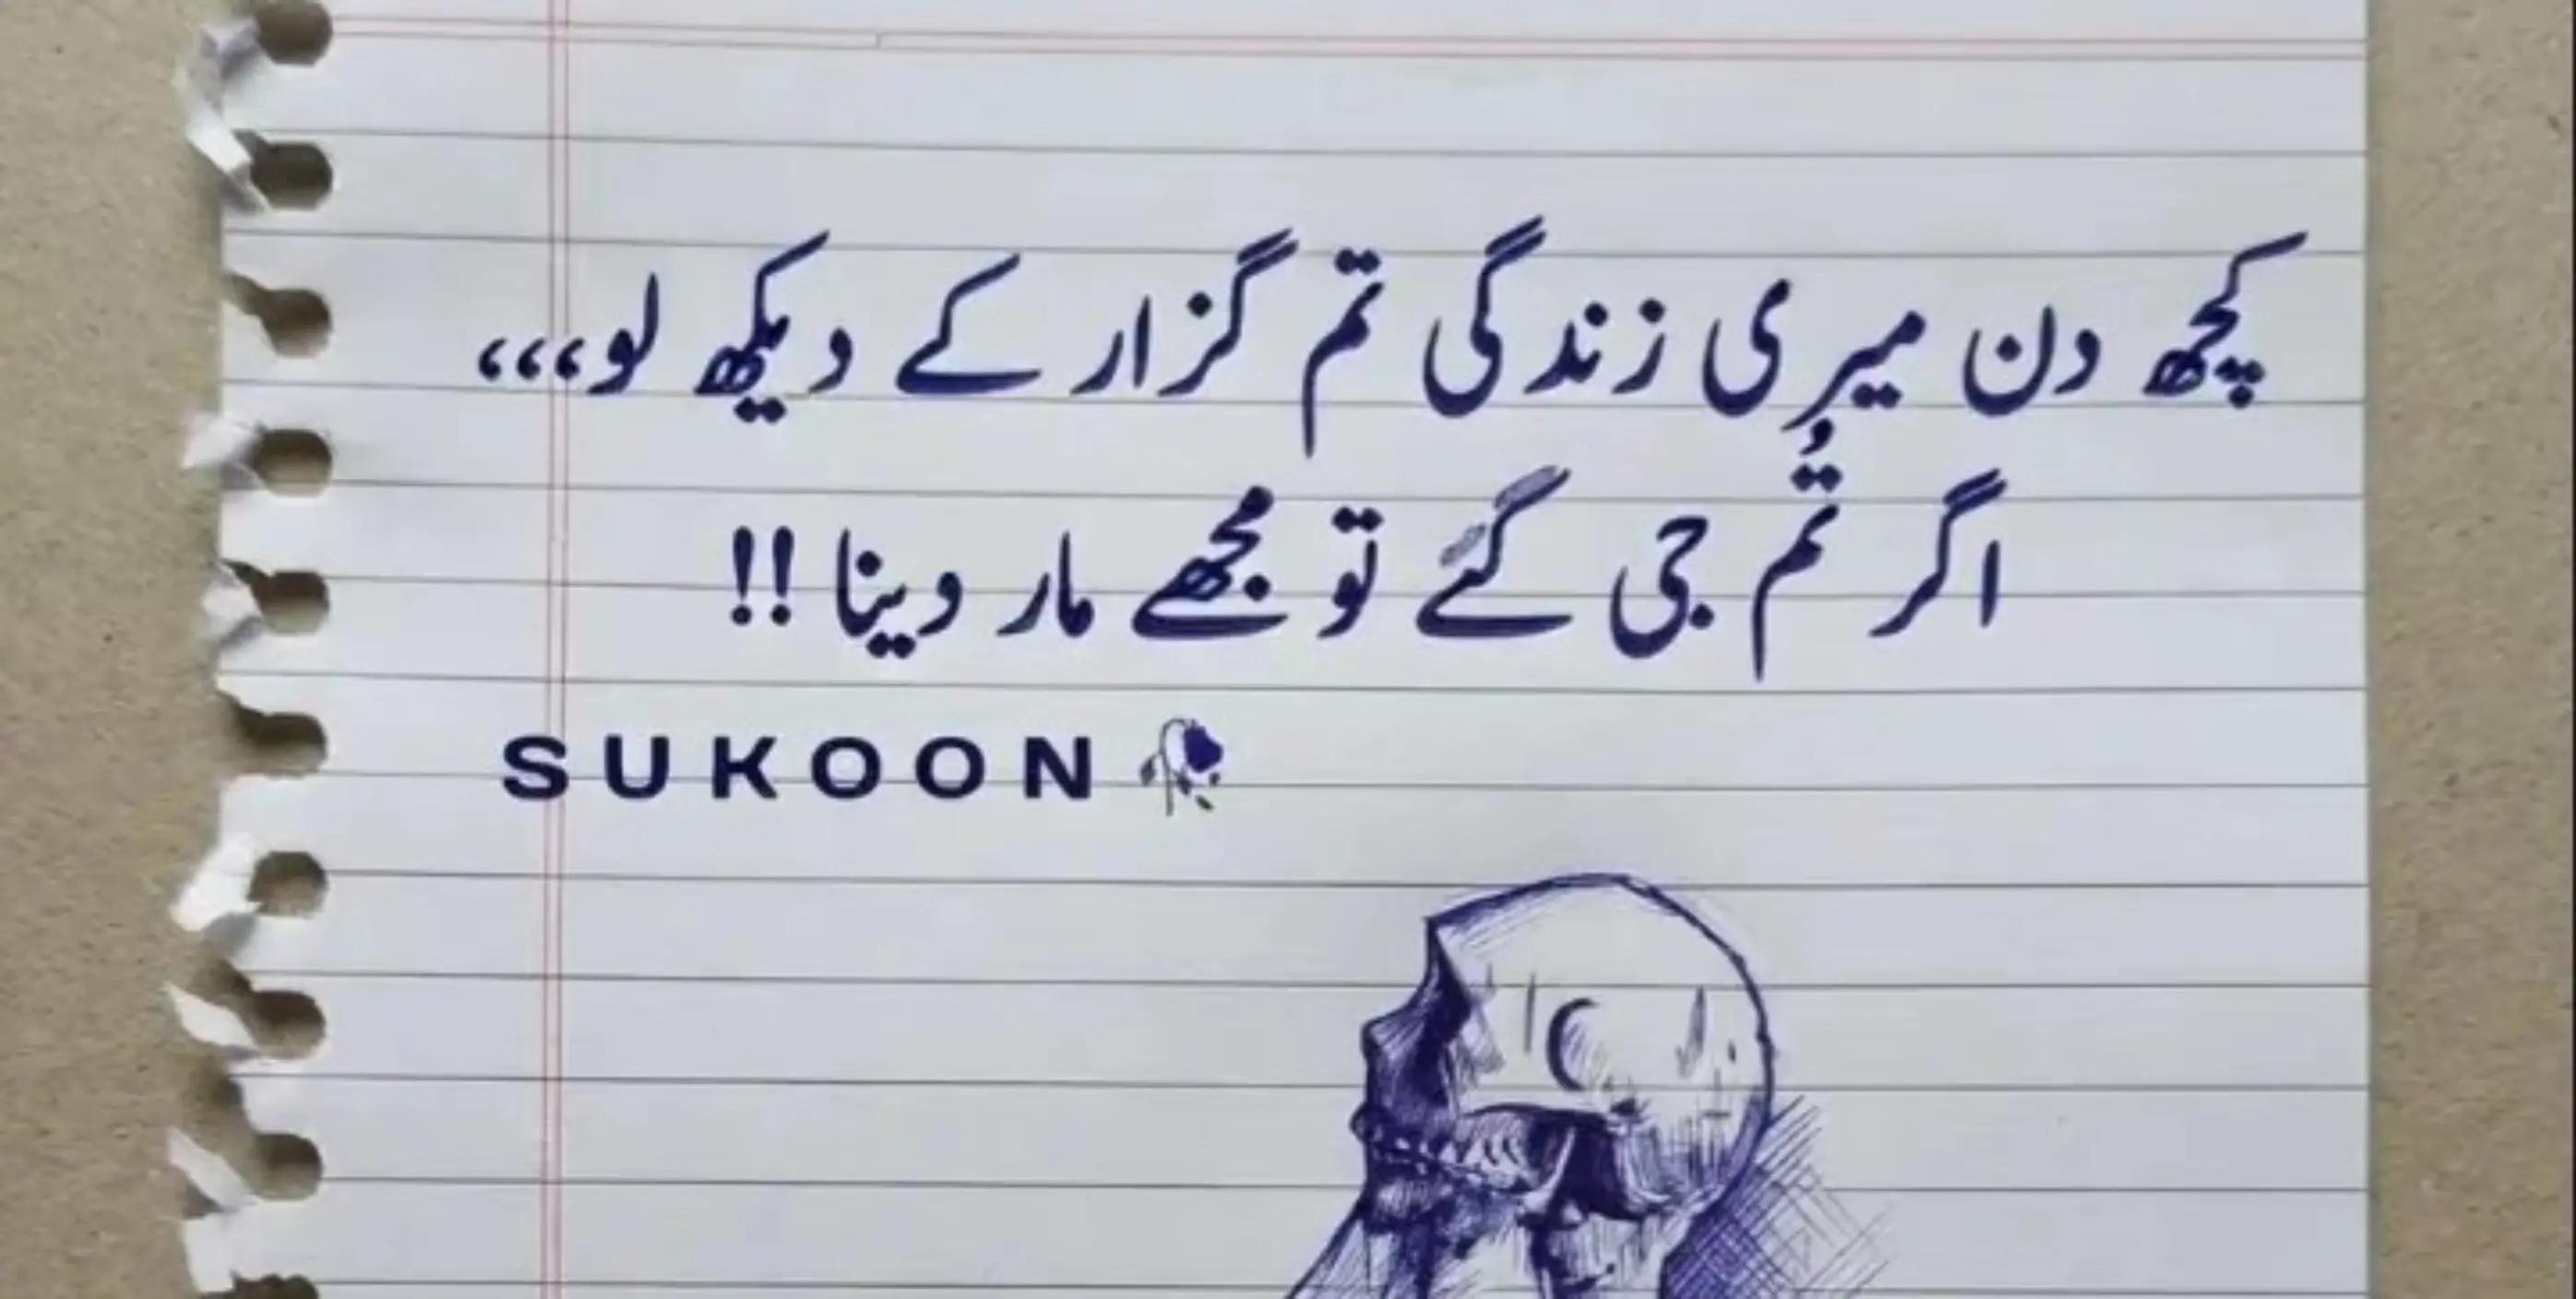 کچھ دن میری زندگی تم گزار کے دیکھ لو،،،
اگر تُم جی گئے تو مجھے مار دینا !!
SUKOON